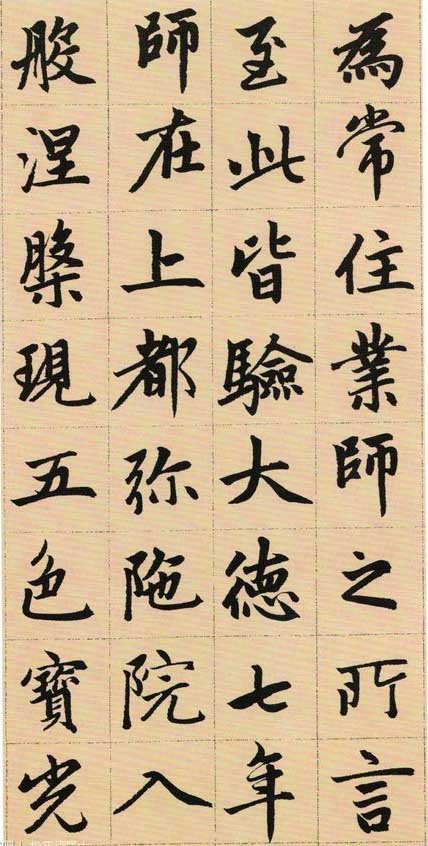 為常住業師之所言
至此皆驗大德七年
師在上都彌陁院入
般涅槃現五色寶光